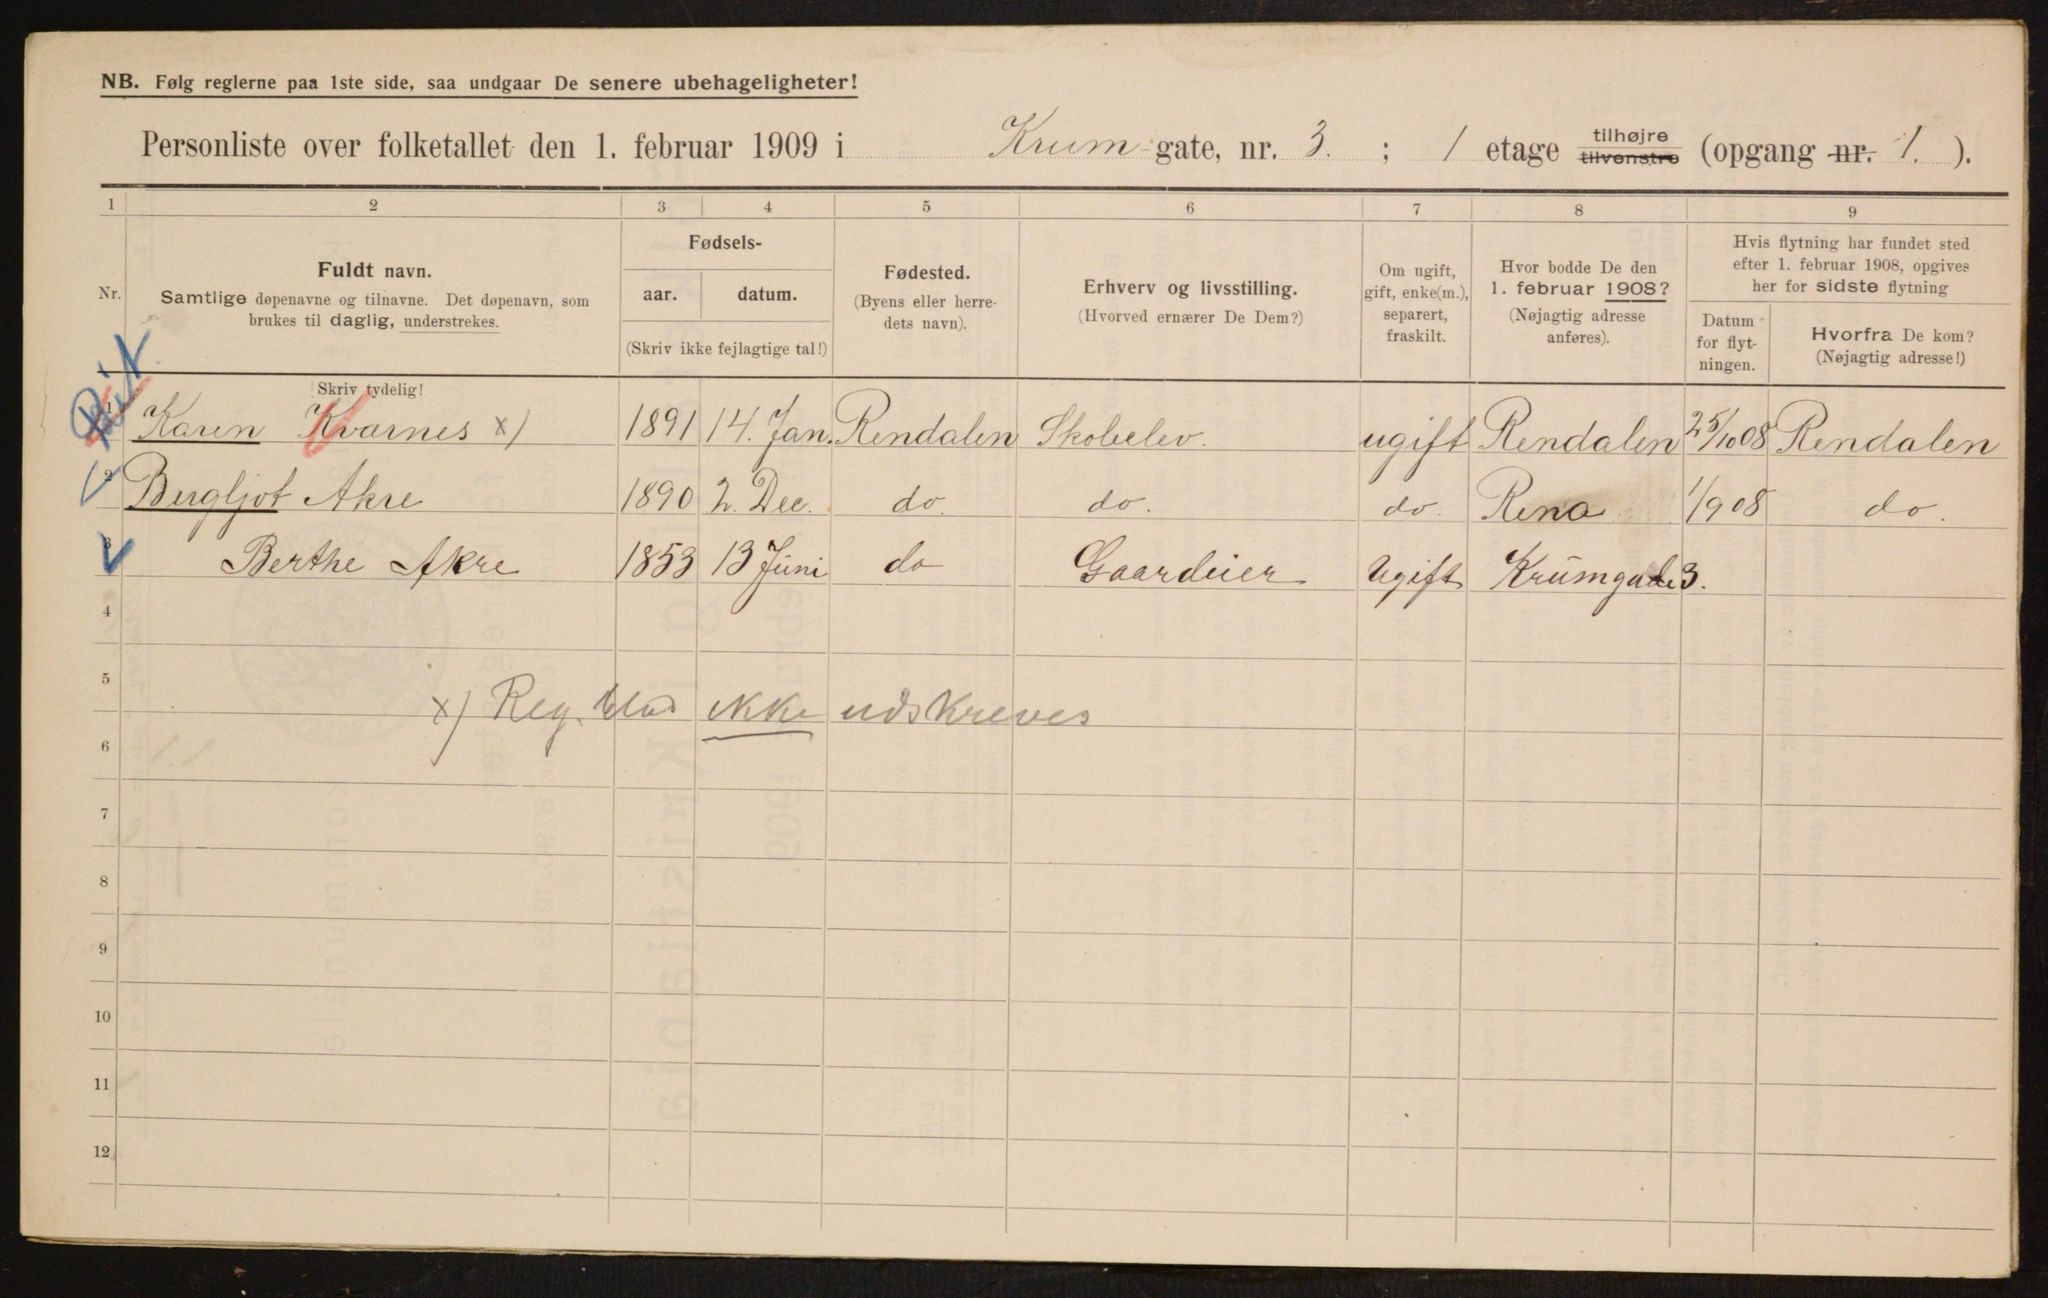 NB. Følg reglerne paa 1ste side, saa undgaar De senere ubehageligheter!
Personliste over folketallet den 1. februar 1909 i Krum gate, nr. 3. ; 1 etage tilhøjre tilvenstre (opgang nr. 1. ).
1 2 3 4 5 6 7 8 9
Nr.
Fuldt navn.
Samtlige døpenavne og tilnavne. Det døpenavn, som
brukes til daglig, understrekes.
Skriv tydelig!
Fødsels-
aar. datum.
(Skriv ikke fejlagtige tal!)
Fødested.
(Byens eller herre-
dets navn).
Erhverv og livsstilling.
(Hvorved ernærer De Dem?)
Om ugift,
gift, enke(m.),
separert,
fraskilt.
Hvor bodde De den
1. februar 1908?
(Nøjagtig adresse
anføres).
Hvis flytning har fundet sted
efter 1. februar 1908, opgives
her for sidste flytning
Datum
for flyt-
ningen.
Hvorfra De kom?
(Nøjagtig adresse!)
1 Karen Kvarnes x) 1891 14. Jan. Rendalen Skoleelev. ugift Rendalen 25/10 08 Rendalen
2 Bergljot Akre 1890 2. Dec. do. do. do. Rena 1/9 08 do.
3 Berthe Akre 1853 13 Juni do Gaardeier Ugift Krumgade 3.
4
5
x) Reg. blad ikke udskreves
6
7
8
9
10
11
12